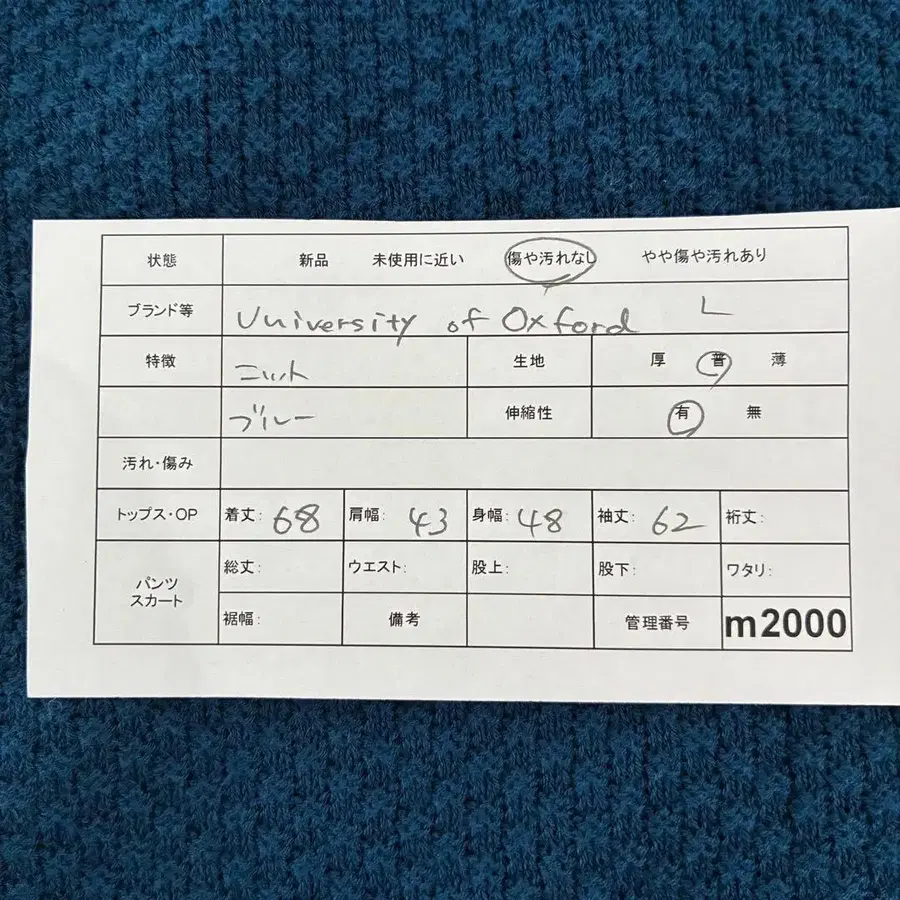 状態 新品 未使用に近い 傷や汚れなし やや傷や汚れあり
ブランド等 University of Oxford L
特徴 ニット 生地 厚 普 薄
ブルー 伸縮性 有 無
汚れ・傷み
トップス・OP 着丈: 68 肩幅: 43 身幅: 48 袖丈: 62 裄丈:
パンツ スカート 総丈: ウエスト: 股上: 股下: ワタリ:
裾幅: 備考 管理番号 m2000